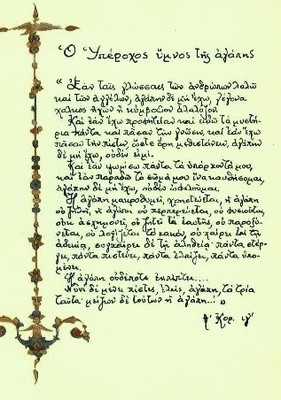 Ὁ Ὑπέροχος ὕμνος τῆς ἀγάπης
« Ἐὰν ταῖς γλώσσαις τῶν ἀνθρώπων λαλῶ
καὶ τῶν ἀγγέλων, ἀγάπην δὲ μὴ ἔχω, γέγονα
χαλκὸς ἠχῶν ἢ κύμβαλον ἀλαλάζον.
Καὶ ἐὰν ἔχω προφητείαν καὶ εἰδῶ τὰ μυστή-
ρια πάντα καὶ πᾶσαν τὴν γνῶσιν, καὶ ἐὰν ἔχω
πᾶσαν τὴν πίστιν, ὥστε ὄρη μεθιστάνειν, ἀγάπην
δὲ μὴ ἔχω, οὐδέν εἰμι.
Καὶ ἐὰν ψωμίσω πάντα τὰ ὑπάρχοντά μου,
καὶ ἐὰν παραδῶ τὸ σῶμά μου ἵνα καυθήσομαι,
ἀγάπην δὲ μὴ ἔχω, οὐδὲν ὠφελοῦμαι.
Ἡ ἀγάπη μακροθυμεῖ, χρηστεύεται, ἡ ἀγάπη
οὐ ζηλοῖ, ἡ ἀγάπη οὐ περπερεύεται, οὐ φυσιοῦται,
οὐκ ἀσχημονεῖ, οὐ ζητεῖ τὰ ἑαυτῆς, οὐ παροξύ-
νεται, οὐ λογίζεται τὸ κακόν, οὐ χαίρει ἐπὶ τῇ
ἀδικίᾳ, συγχαίρει δὲ τῇ ἀληθείᾳ· πάντα στέγει,
πάντα πιστεύει, πάντα ἐλπίζει, πάντα ὑπο-
μένει.
Ἡ ἀγάπη οὐδέποτε ἐκπίπτει....
Νυνὶ δὲ μένει πίστις, ἐλπίς, ἀγάπη, τὰ τρία
ταῦτα· μείζων δὲ τούτων ἡ ἀγάπη...»
Κορ. ιγ'